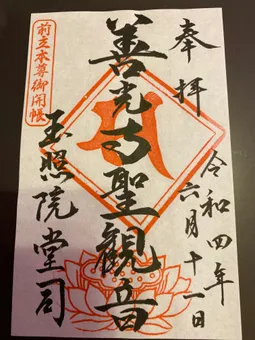 奉拝
令和四年
六月十一日
善光寺聖観音
前立本尊御開帳
玉照院堂司